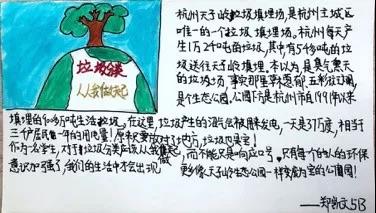 垃圾分类
人人有责
杭州天子岭垃圾填埋场,是杭州主城区
唯一的一个垃圾填埋场。杭州每天产
生1万2千吨的垃圾,其中有5千多吨的垃圾
送往天子岭填埋。本以为是臭气熏天
的垃圾场,事实那里鸟语花香
是个生态公园。公园下是杭州市自1991年以来
填埋的 生活垃圾。在这里,垃圾产生的沼气会被用来发电,一天是31万度,相当于
三 一年的用电量!原来只要放对了地方,垃圾是宝!
作为一名学生,对于垃圾分类应该从我做起,而不能只是响应口号。只有每个人的环保
意识加强了,我们的生活中才会出现更多像天子岭生态公园一样变废为宝的公园!
5B